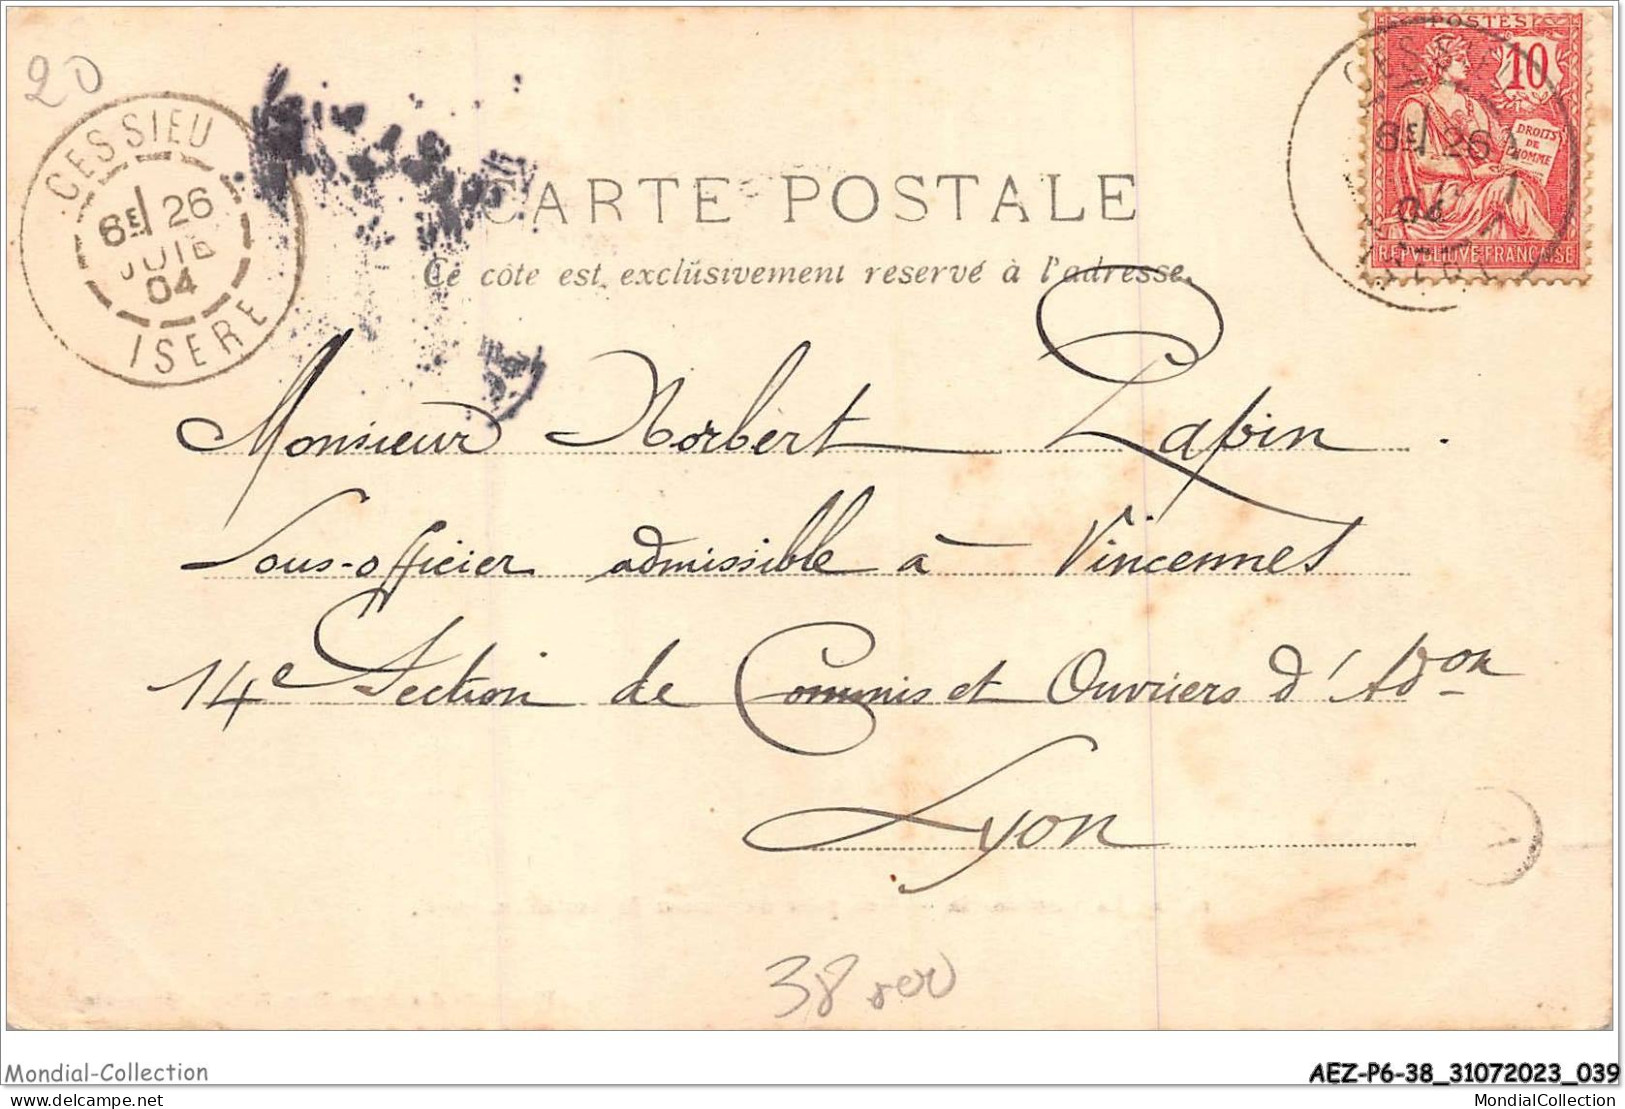 20
CESSIEU
6E 26
JUIL
04
ISERE
POSTES
10
DROITS
DE
L'HOMME
REPUBLIQUE FRANÇAISE
CESSIEU
6E 26
04
CARTE POSTALE
Ce côte est exclusivement reservé à l'adresse.
Monsieur Norbert Lapin.
Sous-officier admissible à Vincennes
14e Section de Commis et Ouvriers d'Adon
Lyon
38
Mondial-Collection
AEZ-P6-38_31072023_039
delcampe.net
MondialCollection